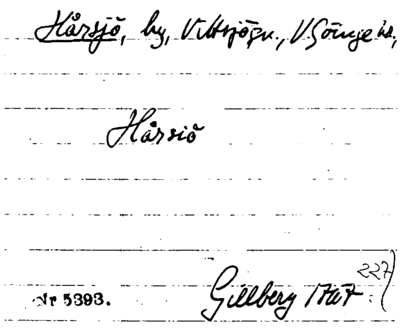 Hårsjö, by, Vittsjö sn., V. Göinge hd,
Hårsiö
227
Nr 5393. Gillberg 1767